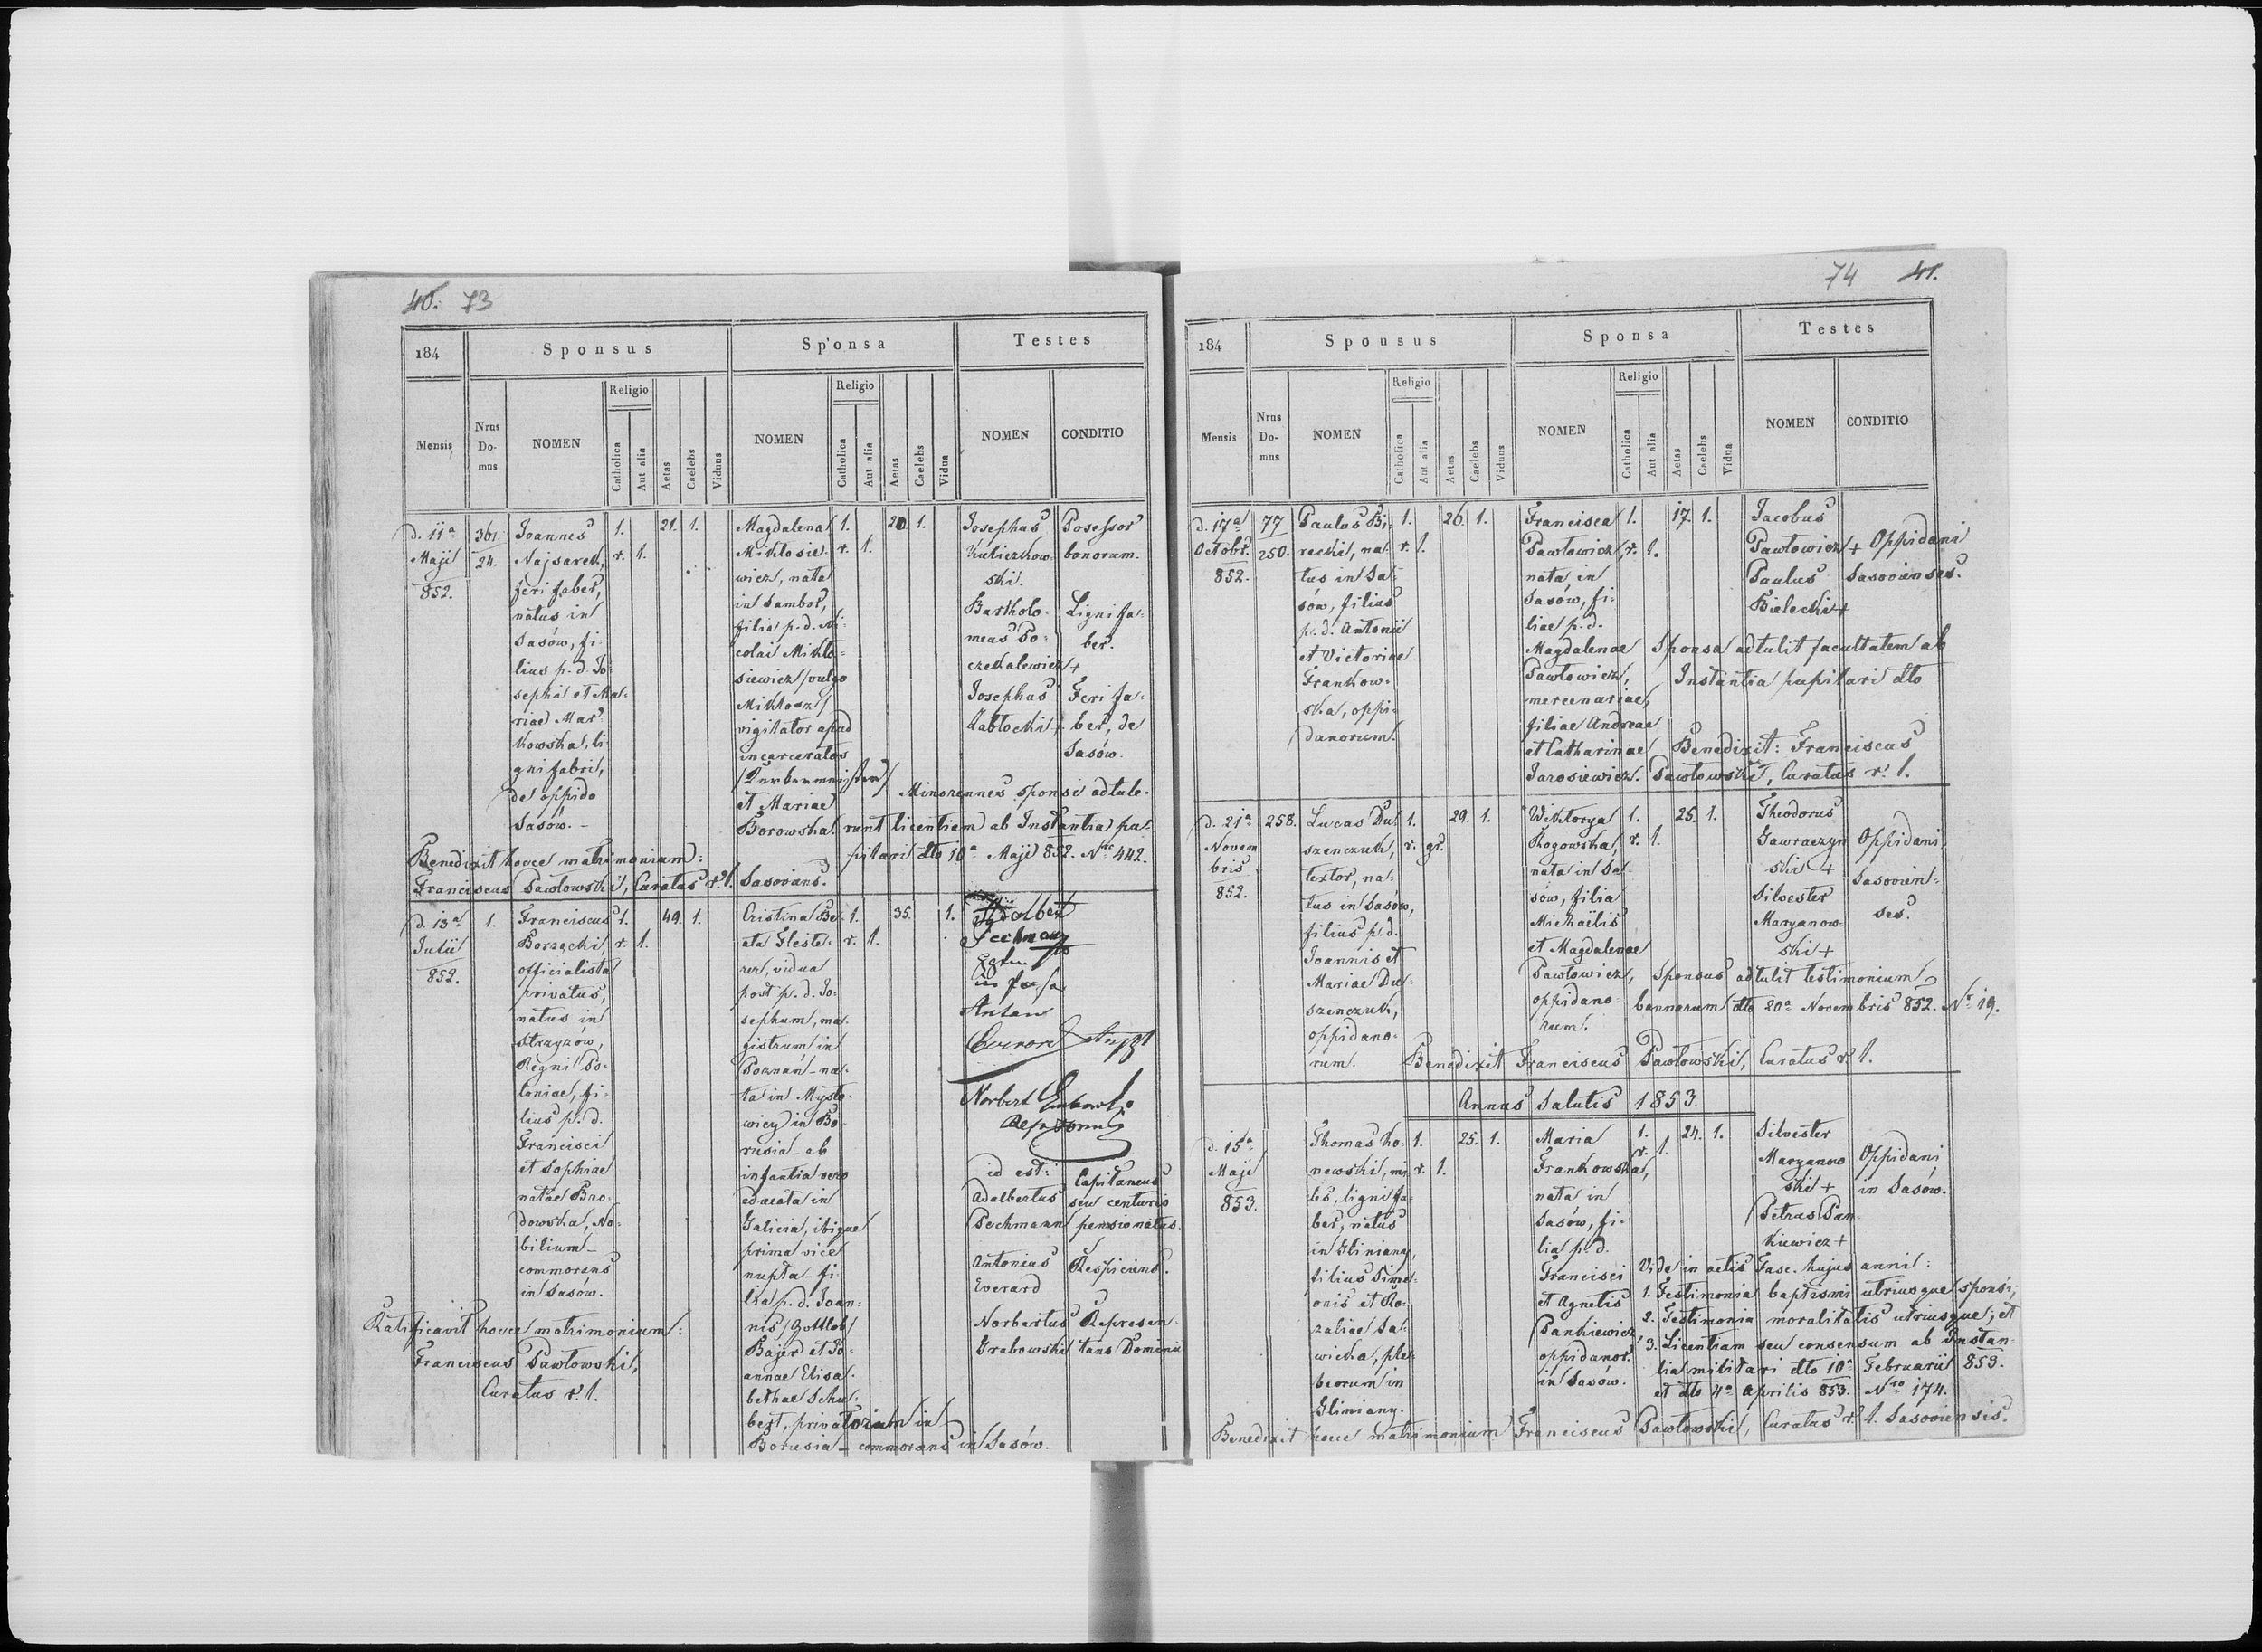 40. 73
184
Sponsus
Sponsa
Testes
Mensis
Nrus Do- mus
NOMEN
Religio
Catholica
Aut alia
Aetas
Caelebs
Viduus
NOMEN
Religio
Catholica
Aut alia
Aetas
Caelebs
Vidua
NOMEN
CONDITIO
d. 11a
Maji
852.
361.
24.
Joannes
Najsarek,
feri faber,
natus in
Sasów, fi-
lius p. d. Jo-
sephi et Ma-
riae Mar-
kowska, li-
gni fabri,
de oppido
Sasów. -
1.
r. 1.
21. 1.
Magdalena
Mikłosie-
wicz, nata
in Sambor,
filia p. d. Ni-
colai Mikło-
siewicz /vulgo
Mikłosz/
vigilator apud
incarceratos
et Mariae
Borowska.
1.
r. 1.
20. 1.
Josephus
Kuliczkow-
ski.
Bartholo-
meus Po-
czekalewicz +
Josephus
Zabłocki +
Posessor
bonorum.
Ligni fa-
ber.
Feri fa-
ber, de
Sasów.
Minorennes sponsi adtule-
runt licentiam ab Instantia pu-
pilari dto 10a Maji 852. Nro 442.
Benedixit hocce matrimonium:
Franciscus Pawłowski, Curatus r. l. Sasoviens.
d. 13a
Julii
852.
1.
Franciscus
Borzęcki,
officialista
privatus,
natus in
Strzyżów,
Regni Po-
loniae, fi-
lius p. d.
Francisci
et Sophiae
natae Bro-
dowska, No-
bilium -
commorans
in Sasów.
1.
r. 1.
49. 1.
Cristina Be-
ata Gleste-
rer, vidua
post p. d. Jo-
sephum, ma-
gistrum in
Poznań - na-
ta in Mysło-
wicy in Bo-
rusia - ab
infantia vero
educata in
Galicia, ibique
prima vice
nupta - fi-
lia p. d. Joan-
nis /Gottlob/
Bajer et Jo-
annae Elisa-
bethae Schu-
bert, privatorum in
Borusia - commorans in Sasów.
1.
r. 1.
35. 1.
Adalbert
Pechmann
Anton
Norbert
id est:
Adalbertus
Pechmann
Antonius
Everard
Norbertus
Grabowski
Capitaneus
seu centurio
pensionatus.
Respiciens.
Represen-
tans Dominii
Ratificavit hocce matrimonium:
Franciscus Pawłowski,
Curatus r. l.
74 41.
184
Sponsus
Sponsa
Testes
Mensis
Nrus Do- mus
NOMEN
Religio
Catholica
Aut alia
Aetas
Caelebs
Viduus
NOMEN
Religio
Catholica
Aut alia
Aetas
Caelebs
Vidua
NOMEN
CONDITIO
d. 17a
Octobr.
852.
77
250.
Paulus Bi-
recki, na-
tus in Sa-
sów, filius
p. d. Antonii
et Victoriae
Frankow-
ska, oppi-
danorum.
1.
r. 1.
26. 1.
Francisca
Pawłowicz
nata in
Sasów, fi-
liae p. d.
Magdalenae
Pawłowicz,
mercenariae,
filiae Andreae
et Catharinae
Jarosiewicz.
1.
r. 1.
17. 1.
Jacobus
Pawłowicz +
Paulus
Bielecki +
Oppidani
Sasovienses.
Sponsa adtulit facultatem ab
Instantia pupilari dto
Benedixit: Franciscus
Pawłowski, Curatus r. l.
d. 21a
Novem
bris
852.
258.
Lucas Du-
szenczuk,
textor, na-
tus in Sasów,
filius p. d.
Joannis et
Mariae Du-
szenczuk,
oppidano-
rum.
1.
r. gr.
29. 1.
Wiktorya
Rogowska,
nata in Sa-
sów, filia
Michaëlis
et Magdalenae
Pawłowicz,
oppidano-
rum.
1.
r. 1.
25. 1.
Theodorus
Gawraczyn
ski +
Silvester
Maryanow-
ski +
Oppidani
Sasovien-
ses.
Sponsus adtulit testimonium
bannorum dto 20a Novembris 852. Nr 19.
Benedixit Franciscus Pawłowski, Curatus r. l.
Annus Salutis 1853.
d. 15a
Maji
853.
Thomas Ko-
newski, mi-
les, ligni fa-
ber, natus
in Gliniany,
filius Sime-
onis et Ro-
zaliae Sa-
wicka, ple-
beorum in
Gliniany.
1.
r. 1.
25. 1.
Maria
Frankowska,
nata in
Sasów, fi-
lia p. d.
Francisci
et Agnetis
Pankiewicz,
oppidanor.
in Sasów.
1.
r. 1.
24. 1.
Silvester
Maryanow
ski +
Petrus Pan-
kiewicz +
Oppidani
in Sasów.
Vide in actis Fasc. hujus anni:
1. Testimonia baptismi utriusque sponsi;
2. Testimonia moralitatis utriusque; et
3. Licentiam seu consensum ab Instan-
tia militari dto 10a Februarii 853.
et dto 4a Aprilis 853. Nro 174.
Benedixit hocce matrimonium Franciscus Pawłowski, Curatus r. l. Sasoviensis.